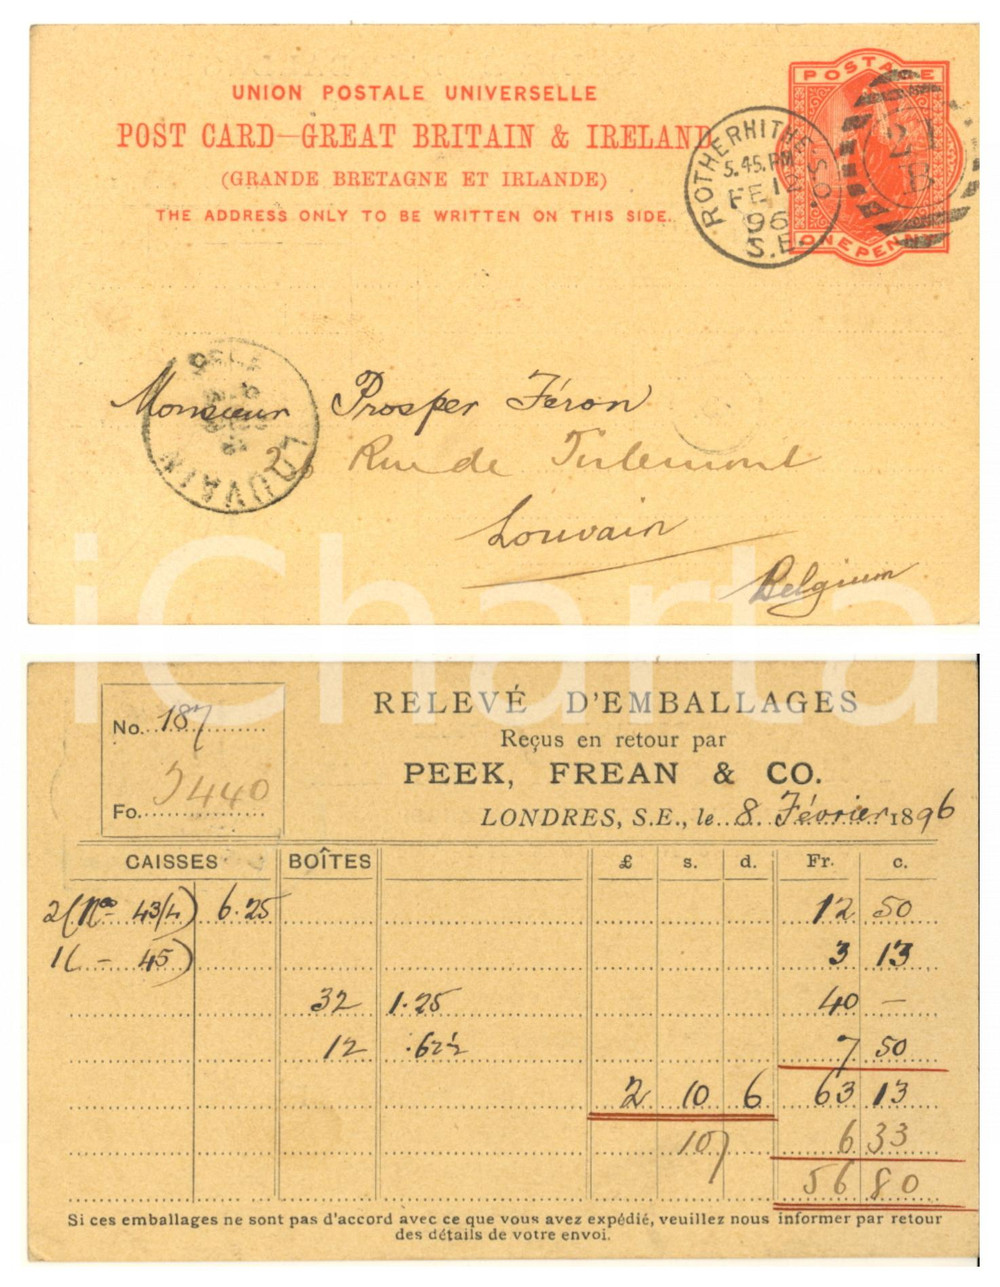 UNION POSTALE UNIVERSELLE
POST CARD—GREAT BRITAIN & IRELAND
(GRANDE BRETAGNE ET IRLANDE)
THE ADDRESS ONLY TO BE WRITTEN ON THIS SIDE.
POSTAGE
ONE PENNY
ROTHERHITHE S.O.
5.45.PM
FE 12
96
S.E.
21
B
LOUVAIN
Monsieur Prosper Féron
Rue de Tirlemont
Louvain
Belgium
iCharta
No. 187
Fo. 5440
RELEVÉ D'EMBALLAGES
Reçus en retour par
PEEK, FREAN & CO.
LONDRES, S.E., le 8 Février 1896
CAISSES BOÎTES £ s. d. Fr. c.
2 (Nos 43/4) 6.25 12 50
1 ( – 45) 3 13
32 1.25 40 —
12 .62½ 7 50
2 10 6 63 13
6 33
56 80
Si ces emballages ne sont pas d'accord avec ce que vous avez expédié, veuillez nous informer par retour
des détails de votre envoi.